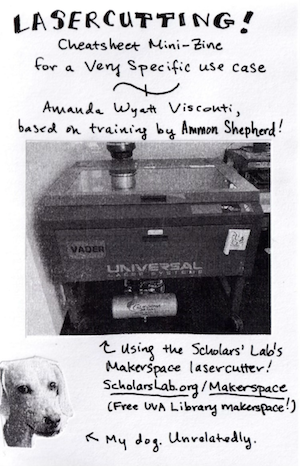 LASERCUTTING!
Cheatsheet Mini-Zine
for a Very Specific use case
Amanda Wyatt Visconti,
based on training by Ammon Shepherd!
VADER
UNIVERSAL
↑ Using the Scholars' Lab's
Makerspace lasercutter!
ScholarsLab.org/Makerspace
(Free UVA Library makerspace!)
← My dog. Unrelatedly.